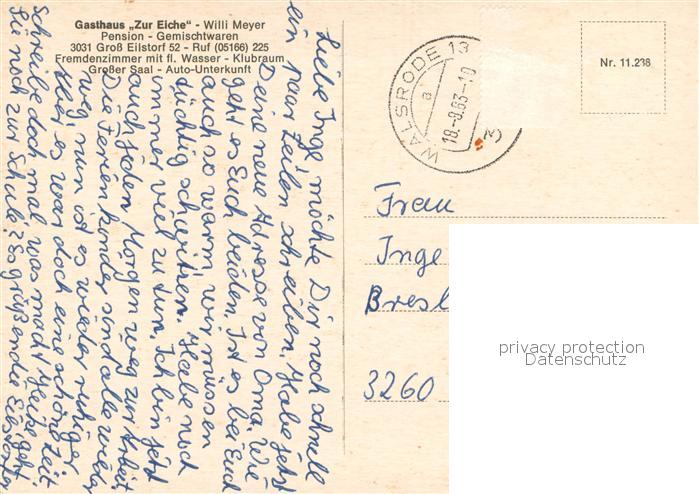 Gasthaus „Zur Eiche" - Willi Meyer
Pension - Gemischtwaren
3031 Groß Eilstorf 52 - Ruf (05166) 225
Fremdenzimmer mit fl. Wasser - Klubraum
Großer Saal - Auto-Unterkunft
Liebe Inge möchte Dir noch schnell
ein paar Zeilen schreiben. Habe jetzt
Deine neue Adresse von Oma. Wie
geht es Euch beiden. Ist es bei Euch
auch so warm, wir müssen
tüchtig schwitzen. Habe noch
immer viel zu tun. Ich bin jetzt
auch jeden Morgen weg zur Arbeit
Die Ferienkinder sind alle wieder
weg, nun ist es wieder ruhiger
Aber es war doch eine schöne Zeit
Schreibe doch mal was macht Heike geht
Sie noch zur Schule? Es grüßen die Eilstorfer
WALSRODE 13
a
18.-8.83-10
Nr. 11.238
Frau
Inge
Bresl
3260
privacy protection
Datenschutz